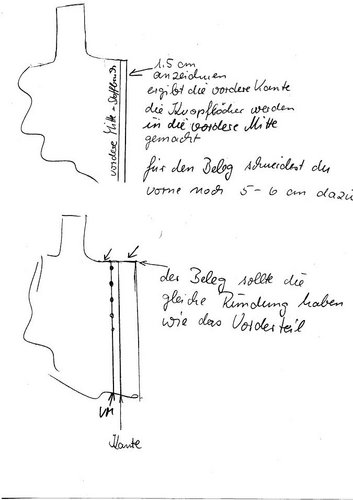 1.5 cm
anzeichnen
ergibt die vordere Kante
die Knopflöcher werden
in die vordere Mitte
gemacht
vordere Mitte = Stoffbruch
für den Beleg schneidest du
vorne noch 5-6 cm dazu
der Beleg sollte die
gleiche Rundung haben
wie das Vorderteil
VM
Kante